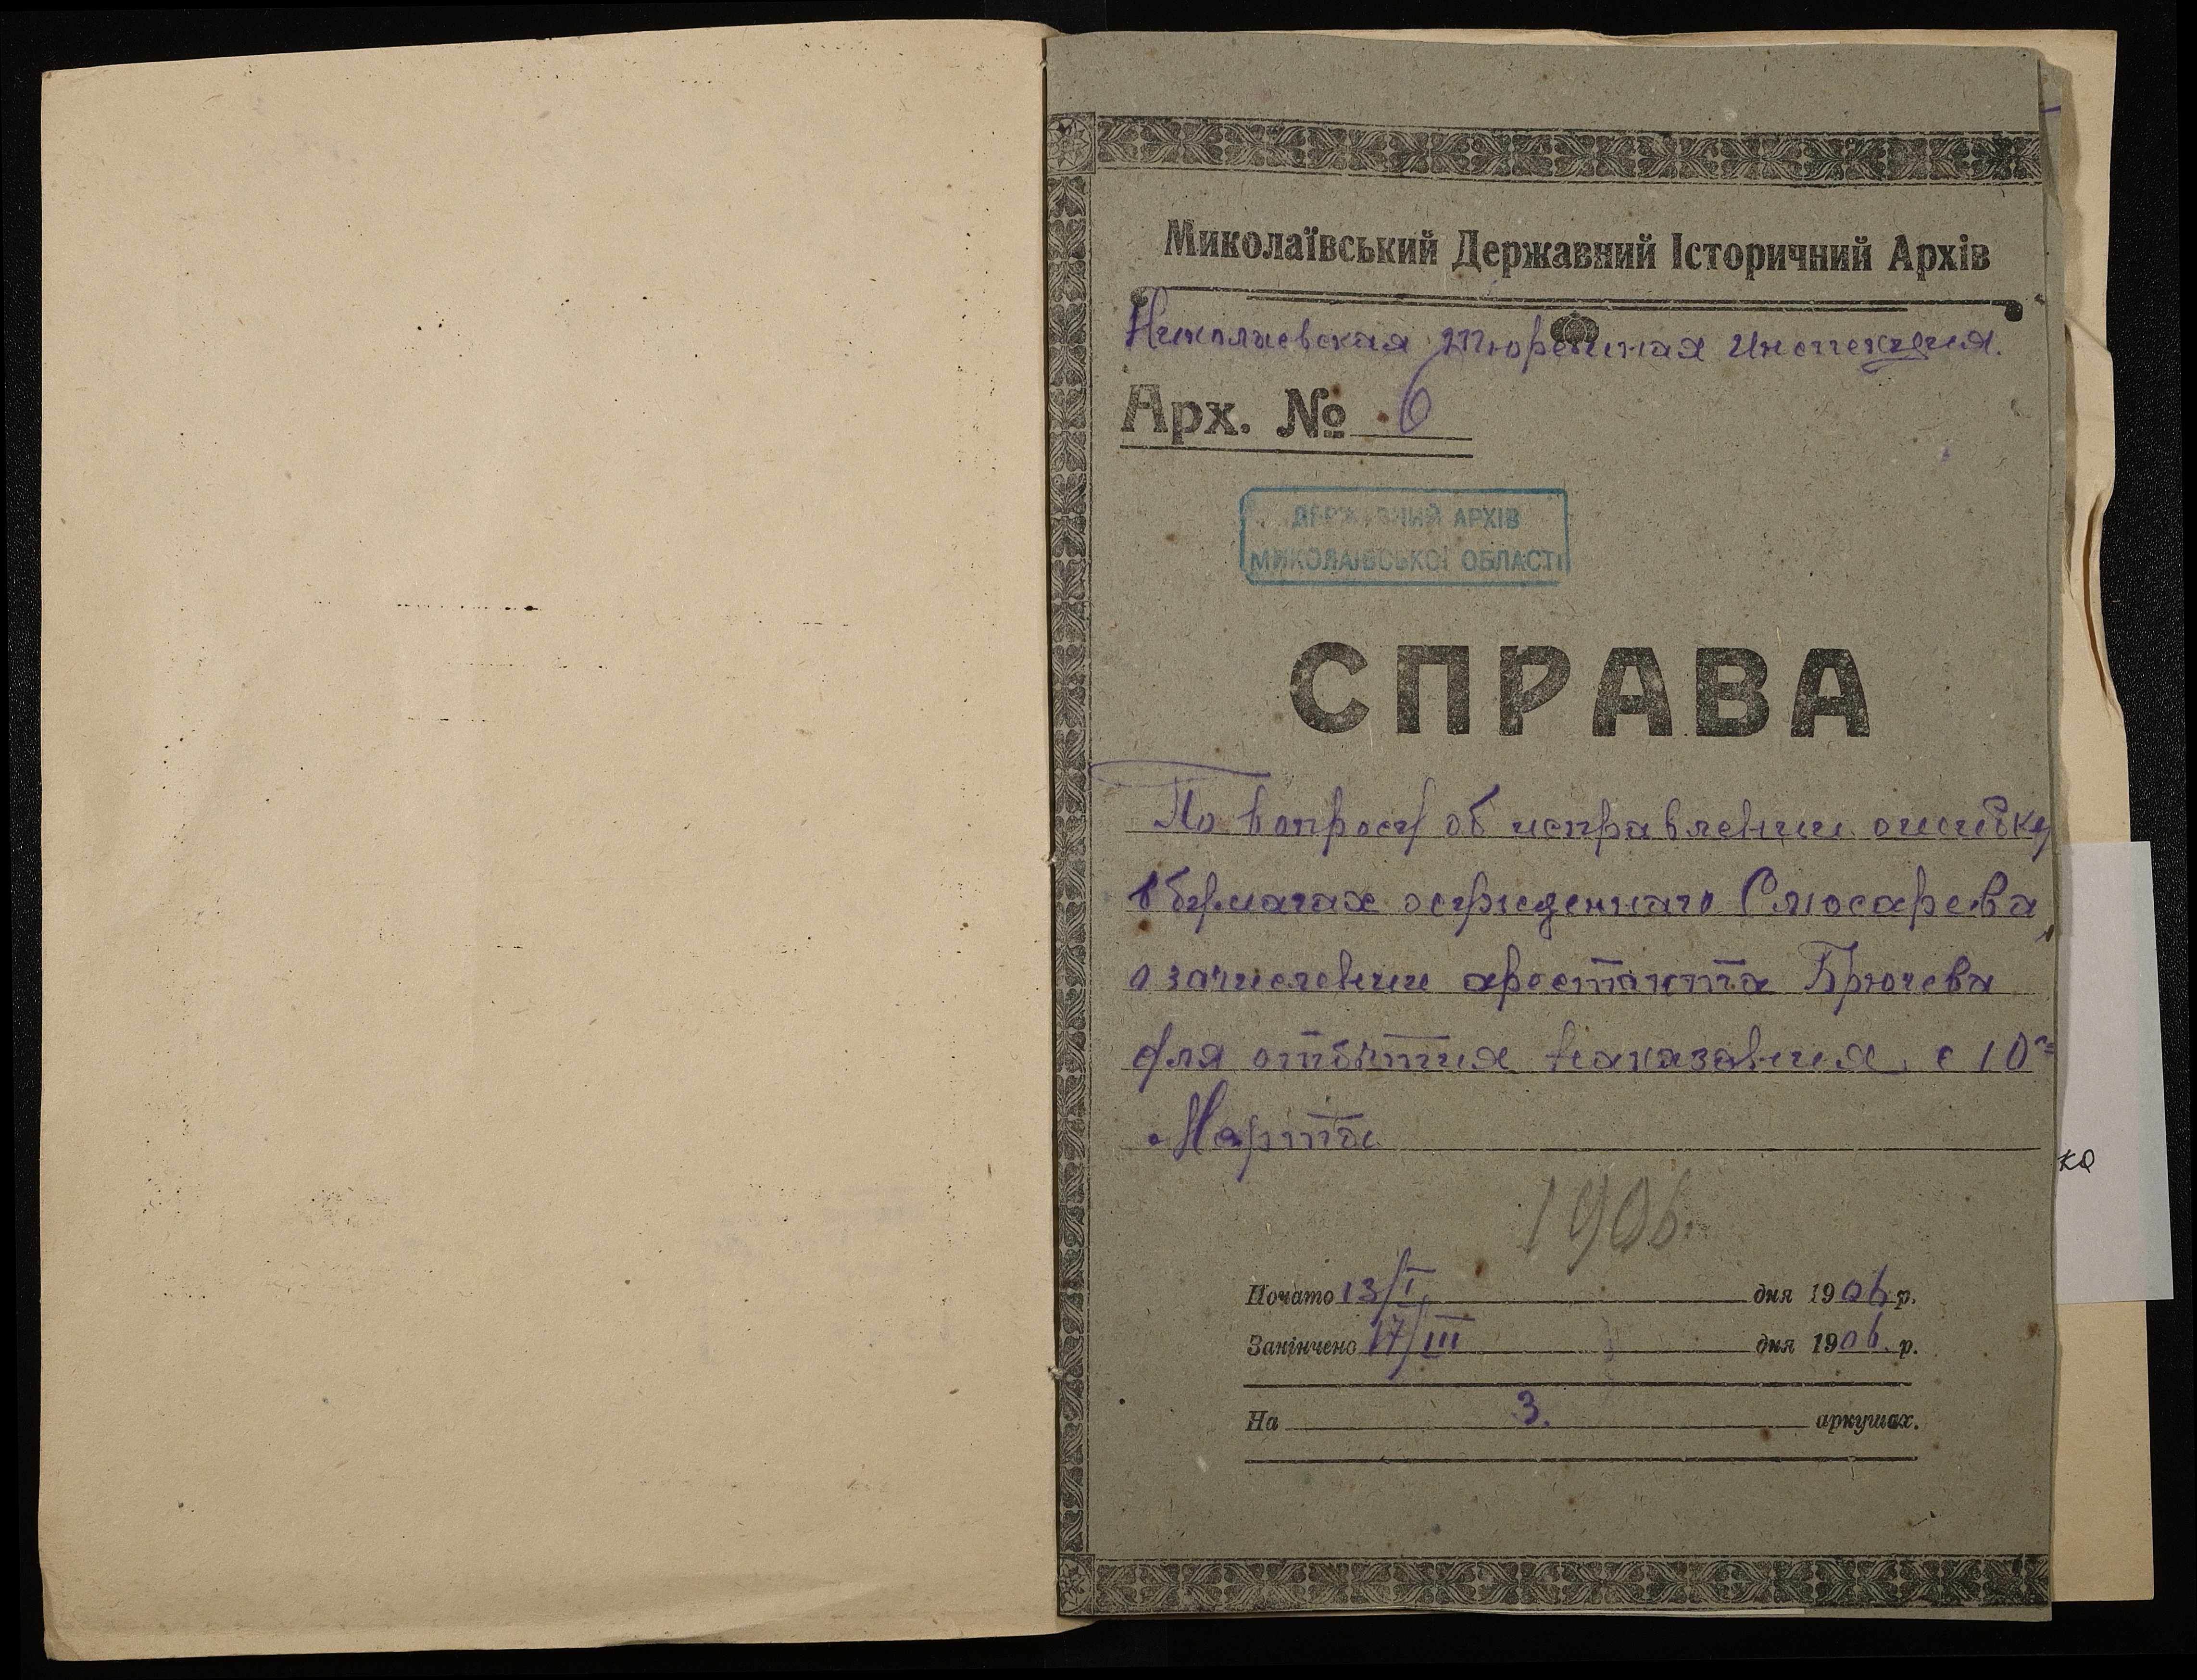 Миколаївський Державний Історичний Архів
Николаевская тюремная инспекция.
Арх. № 6
ДЕРЖАВНИЙ АРХІВ
МИКОЛАЇВСЬКОЇ ОБЛАСТІ
СПРАВА
По вопросу об исправлении ошибки
в бумагах осужденнаго Слюсарева,
о зачислении арестанта Брючева
для отбытия наказания с 10го
Марта
1906.
Почато 13/I дня 1906 р.
Закінчено 17/III дня 1906. р.
На 3. аркушах.
ка